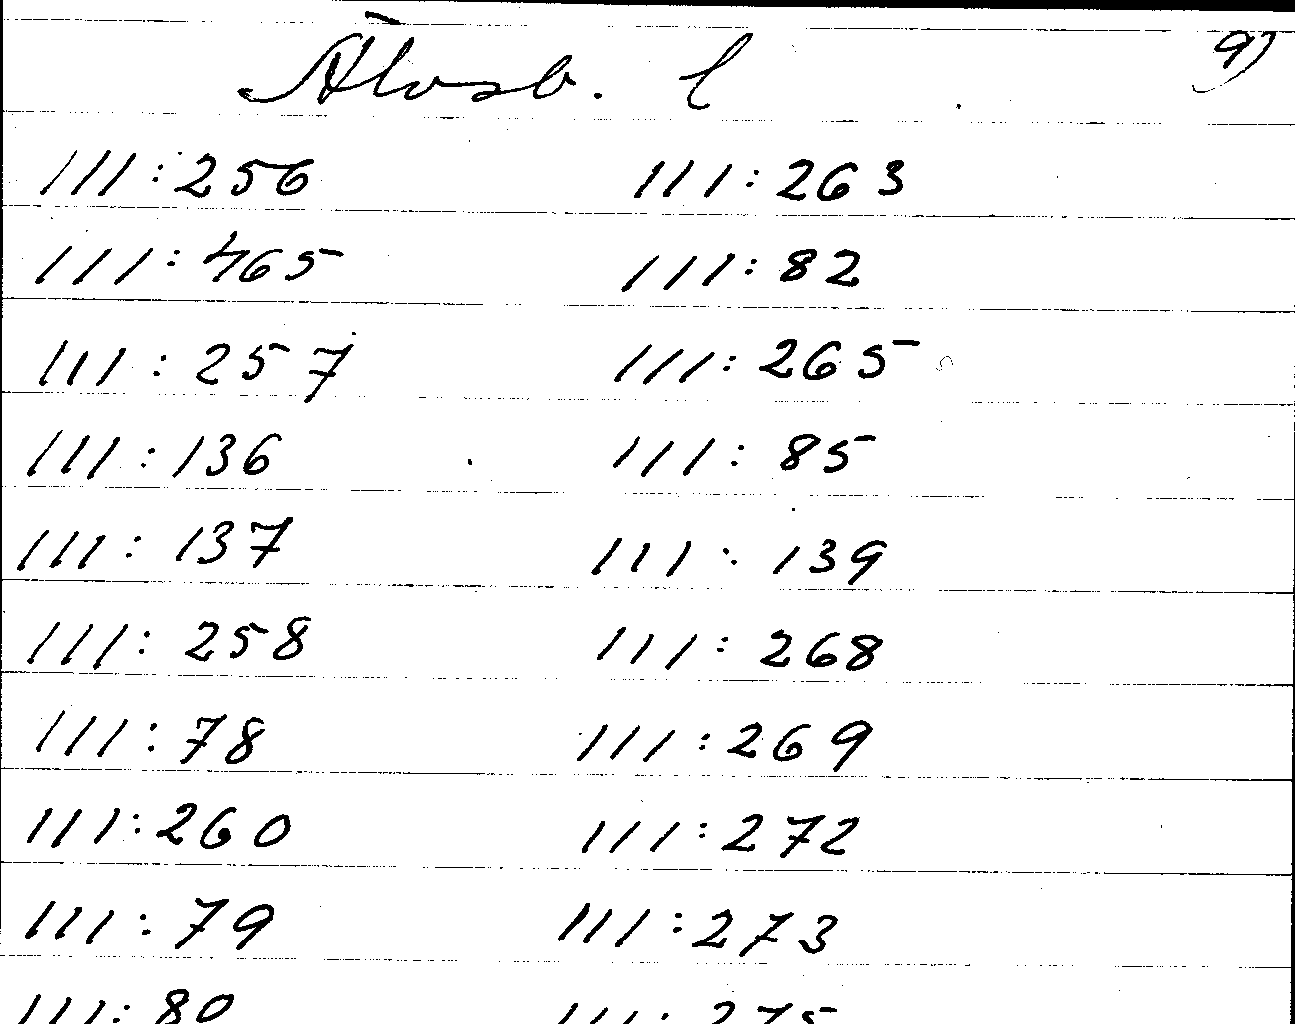 Älvsb. l 9)
111:256 111:263
111:465 111:82
111:257 111:265
111:136 111:85
111:137 111:139
111:258 111:268
111:78 111:269
111:260 111:272
111:79 111:273
111:80 111:275